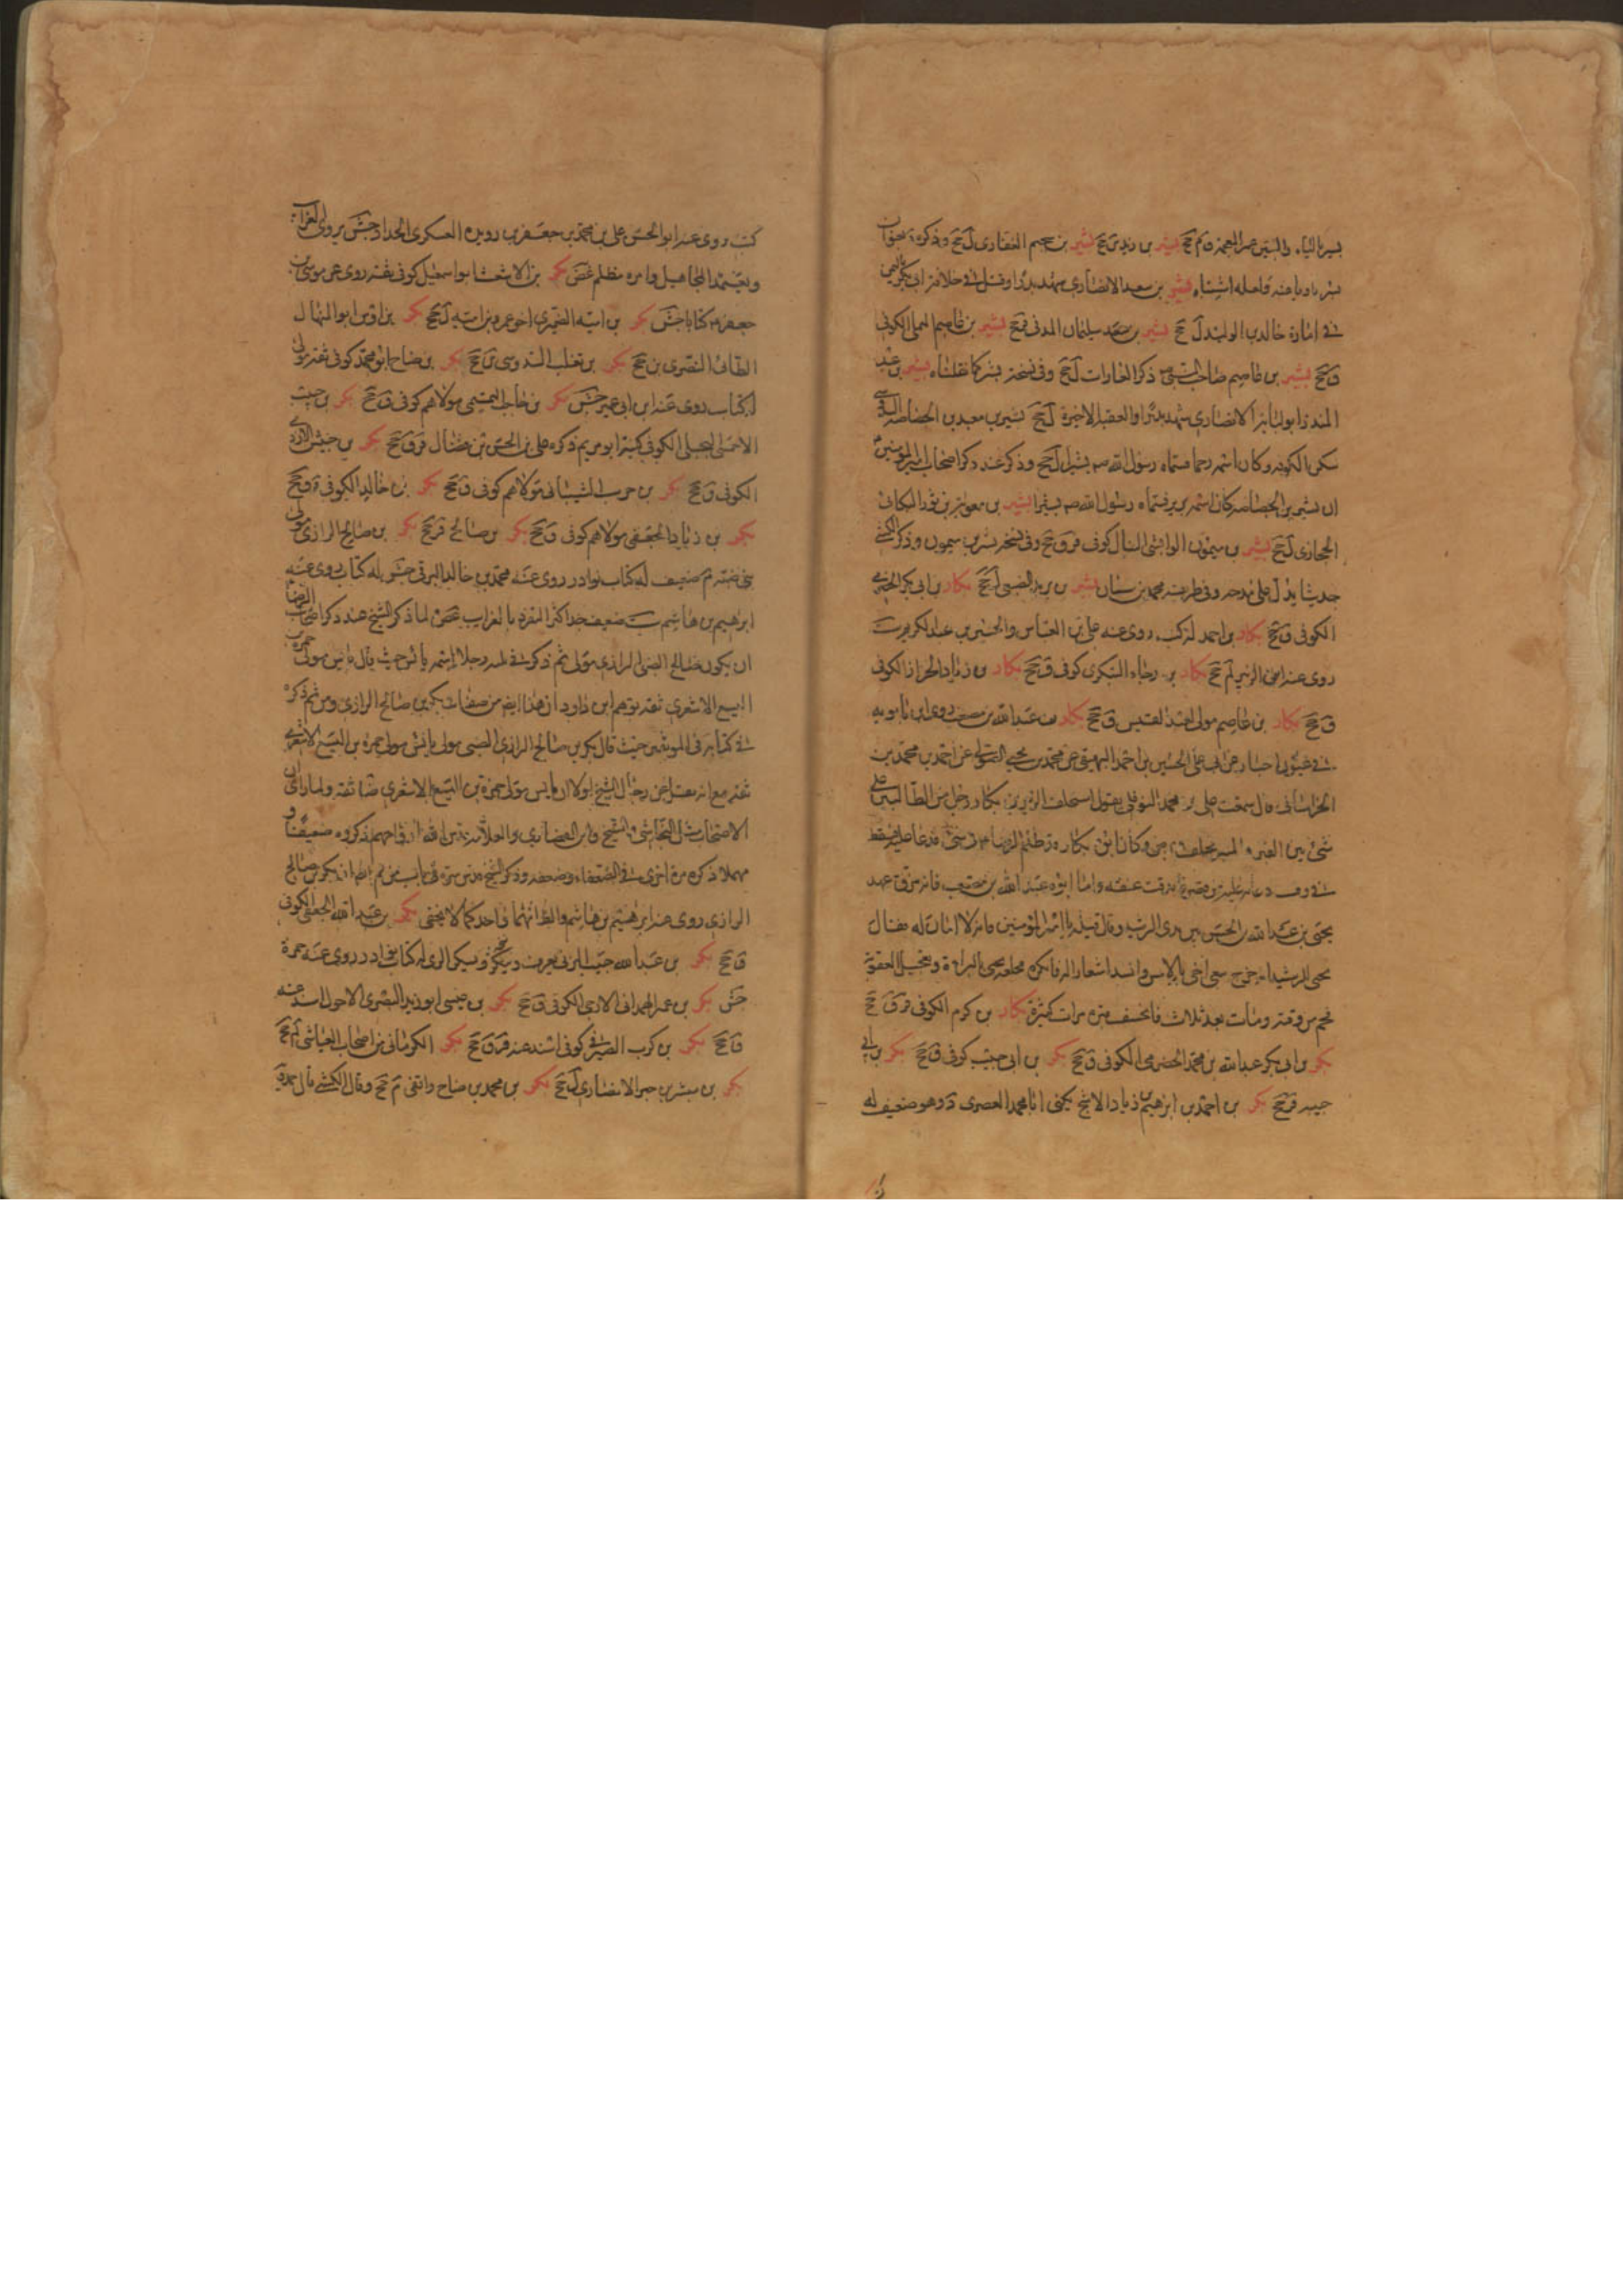 بشير بن زيد بن جح بشير بن سحيم الغفارى ل جح وذكره
بشير بن سعيد الانصارى شهد بدرا وقتل فى خلافة ابى بكر
فى امارة خالد بن الوليد ل جح بشير بن سعد سليمان المدنى ق جح بشير بن عاصم البجلى الكوفى
ق جح بشير بن عاصم صاحب النبى ص ذكر الغارات ل جح وفى نسخة بشر كما نقلناه بشير بن عبد
المنذر ابو لبابة الانصارى شهد بدرا والعقبة الاخيرة ل جح بشير بن معبد بن الخصاصية
سكن الكوفة وكان اسمه زحما فسماه رسول الله ص بشير ل جح وذكر عند ذكر اصحاب امير المؤمنين
ان بشير بن الخصاصية كان اسمه برير فسماه رسول الله ص بشيرا بشير بن معوية بن ثور البكائى
الحجازى ل جح بشير بن ميمون الوابشى النبال كوفى قر ق جح وفى نسخة بشر بن ميمون وذكر الكشى
حديثا يدل على مدحه وفى طريقه محمد بن سنان بشير بن يزيد الضبعى ل جح بكار بن ابى بكر الحضرمى
الكوفى ق جح بكار بن احمد له كتب روى عنه على بن العباس والحسين بن عبد الكريم ست
روى عنه ابن الزبير لم جح بكار بن رجاء اليشكرى كوفى ق جح بكار بن زياد الخزاز الكوفى
ق جح بكار بن عاصم مولى لعبد القيس ق جح بكار بن عبد الله بن مصعب روى ابن بابويه
فى عيون اخبار عن ابى على الحسين بن احمد البيهقى عن محمد بن يحيى الصولى عن احمد بن محمد بن
الخراسانى قال سمعت على بن محمد النوفلى يقول استحلف الزبير بن بكار رجل من الطالبيين على
شئ بين القبر والمنبر فحلف فبرص وكان ابوه بكار قد ظلم الرضا ع فى شئ فدعا عليه فسقط
فى وقت دعائه عليه من قصره فاندقت عنقه واما ابوه عبد الله بن مصعب فانه مزق عهد
يحيى بن عبد الله بن الحسن بين يدى الرشيد وقال اقتله يا امير المؤمنين فانه لا امان له فقال
يحيى للرشيد انه خرج مع اخى بالامس وانشد اشعارا له فانكره فحلفه يحيى بالبراءة وتعجيل العقوبة
فحم من وقته ومات بعد ثلاث فانخسف قبره مرات كثيرة بكار بن كردم الكوفى قر ق جح
بكر بن ابى بكر عبد الله بن محمد الحضرمى الكوفى ق جح بكر بن ابى حبيب كوفى ق جح بكر بن ابى
حبيبة قر جح بكر بن احمد بن ابراهيم بن زياد الاشج يكنى ابا محمد العصرى د وهو ضعيف له
كتب روى عنه ابو الحسن على بن محمد بن جعفر بن رويدة العسكرى الحداد جش يروى الغرائب
ويعتمد المجاهيل وامره مظلم غض بكر بن الاشعث ابو اسمعيل كوفى ثقة روى عن موسى بن
جعفر ع كتابا جش بكر بن امية الضمرى اخو عمرو بن امية ل جح بكر بن اوس ابو المنهال
الطائى البصرى ين جح بكر بن تغلب السدوسى ين جح بكر بن جناح ابو محمد كوفى ثقة مولى
له كتاب روى عنه ابن ابى عمير جش بكر بن حاجب التميمى مولاهم كوفى ق جح بكر بن حبيب
الاحمسى البجلى الكوفى كنيته ابو مريم ذكره على بن الحسن بن فضال قر ق جح بكر بن حبيش الازدى
الكوفى ق جح بكر بن حرب الشيبانى مولاهم كوفى ق جح بكر بن خالد الكوفى ق جح
بكر بن زياد الجعفى مولاهم كوفى ق جح بكر بن صالح قر جح بكر بن صالح الرازى مولى
بنى ضبة م ضعيف له كتاب نوادر روى عنه محمد بن خالد البرقى جش له كتاب روى عنه
ابرهيم بن هاشم ست ضعيف جدا كثير التفرد بالغرائب غض لما ذكر الشيخ عند ذكر اصحاب الرضا
ان بكر بن صالح الضبى الرازى مولى ثم ذكر رجلا اسمه يانس حيث قال يانس مولى حمزة بن
اليسع الاشعرى ثقة توهم ابن داود ان هذا ايضا من صفات بكر بن صالح الرازى ومن ثم ذكره
فى كتابه فى الموثقين حيث قال بكر بن صالح الرازى الضبى مولى يانس مولى حمزة بن اليسع الاشعرى
ثقة مع انه نقل عن رجال الشيخ اولا ان يانس مولى حمزة بن اليسع الاشعرى ضا ثقة ولما راى ان
الاصحاب مثل النجاشى والشيخ وابن الغضائرى والعلامة قدس الله ارواحهم ذكروه ضعيفا و
مهملا ذكره مرة اخرى فى الضعفاء وضعفه وذكر الشيخ قدس سره فى باب من لم
الرازى روى عنه ابرهيم بن هاشم والظ انهما واحد كما لا يخفى بكر بن عبد الله الجعفى الكوفى
ق جح بكر بن عبد الله حبيب المزنى يعرف وينكر يسكن الرى له كتاب نوادر روى عنه حمزة
جش بكر بن عمير الهمدانى الارحبى الكوفى ق جح بكر بن عيسى ابو زيد البصرى الاحول اسند عنه
ق جح بكر بن كرب الصيرفى كوفى اسند عنه قر ق جح بكر الكرمانى من اصحاب العياشى لم جح
بكر بن مبشر بن جبر الانصارى ل جح بكر بن محمد بن جناح واقفى م جح وقال الكشى قال حمدويه